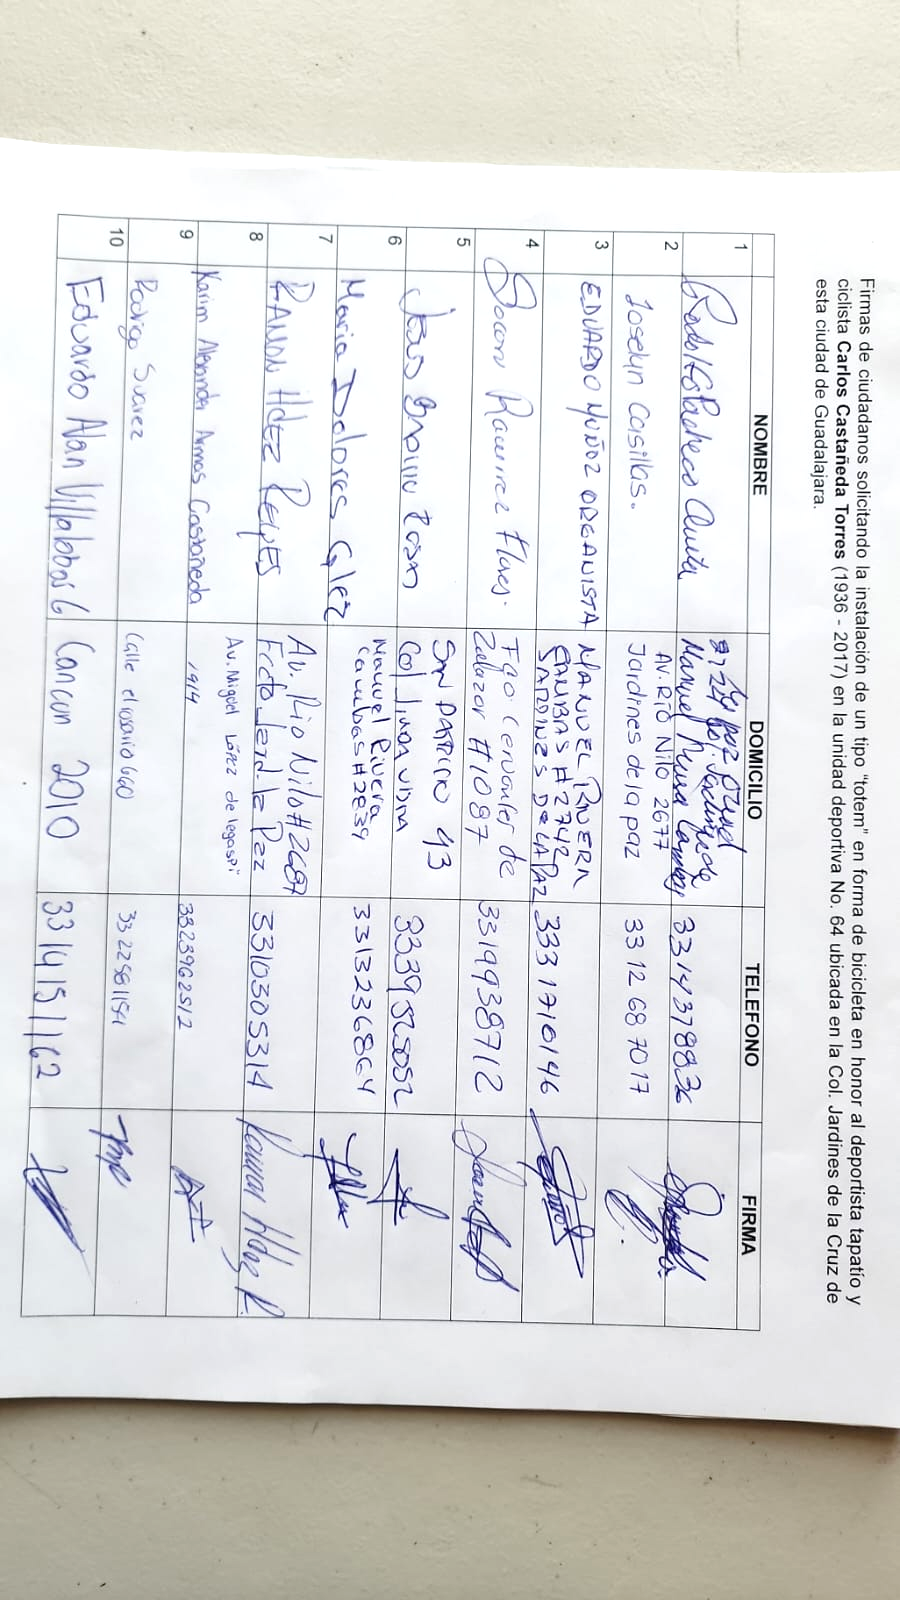 Firmas de ciudadanos solicitando la instalación de un tipo “totem” en forma de bicicleta en honor al deportista tapatío y
ciclista Carlos Castañeda Torres (1936 - 2017) en la unidad deportiva No. 64 ubicada en la Col. Jardines de la Cruz de
esta ciudad de Guadalajara.
NOMBRE DOMICILIO TELEFONO FIRMA
1 Pacheco
Manuel
3314378836
2 Joselyn Casillas.
Av. Río Nilo 2677
Jardines de la paz
33 12 68 7017
3 EDUARDO MUÑOZ ORGANISTA
MANUEL RIVERA
CAMBAS # 2742
JARDINES DE LA PAZ
3331710146
4 Ramirez Flores.
Fco. Cervantes de
Zalazar #1087
3319938712
5
SAN PATRICIO 43
Col
3339525052
6 Maria Dolores Glez
Manuel Rivera
Cambas #2839
3313236864
7 RAMON Hdez REYES
Av. Rio Nilo #2687
Fracto Jard. la Paz
3310305314
8 Karim Alexander Armas Castañeda
Av. Miguel López de legaspi
1914
3323962512
9 Rodrigo Suarez
Calle el rosario 660
33 22581154
10 Eduardo Alan Villalobos G
Cancun 2010
33 14 15 1162